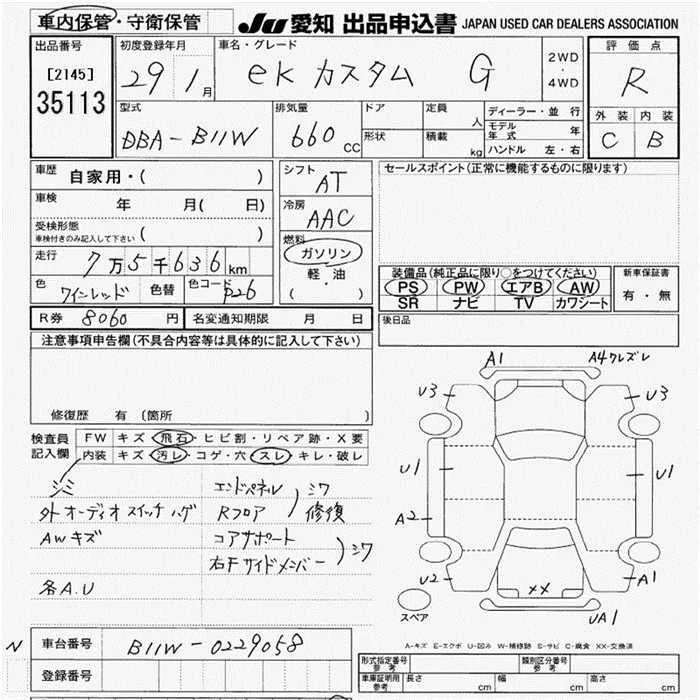 車内保管・守衛保管 JU 愛知 出品申込書 JAPAN USED CAR DEALERS ASSOCIATION
出品番号 初度登録年月 車名・グレード 評価点
[2145] 29 1月 ek カスタム G 2WD・4WD R
35113 型式 排気量 ドア 定員 人 ディーラー・並行 外装 内装
DBA-B11W 660cc 形状 積載 kg モデル年式 年 C B
ハンドル 左・右
車歴 自家用・( ) シフト AT セールスポイント(正常に機能するものに限ります)
車検 年 月( 日) 冷房 AAC
受検形態
車検付きのみ記入して下さい ( ) 燃料 ガソリン
走行 7万5千636km 軽・油 装備品(純正品に限り○をつけてください) 新車保証書
色 ワインレッド 色替 色コード P26 ( ) PS PW エアB AW 有・無
SR ナビ TV カワシート
R券 8060 円 名変通知期限 月 日 後日品
注意事項申告欄(不具合内容等は具体的に記入して下さい)
修復歴 有 (箇所
A1 A4クレズレ
U3 U3
検査員 FW キズ・飛石・ヒビ割・リペア跡・X要
記入欄 内装 キズ・汚レ・コゲ・穴・スレ・キレ・破レ
U1 U1
シミ エンドパネル
外オーディオスイッチハゲ Rフロア )シワ修復
A2
AWキズ コアサポート
右Fサイドメンバー )シワ
各A.U
U2 XX A1
スペア UA1
A-キズ E-エクボ U-凹み W-補修跡 S-サビ C-腐食 XX-交換済
N 車台番号 B11W-0229058
登録番号
形式指定番号 参考 類別区分番号 参考
車庫証明用 参考 長さ cm 幅 cm 高さ cm